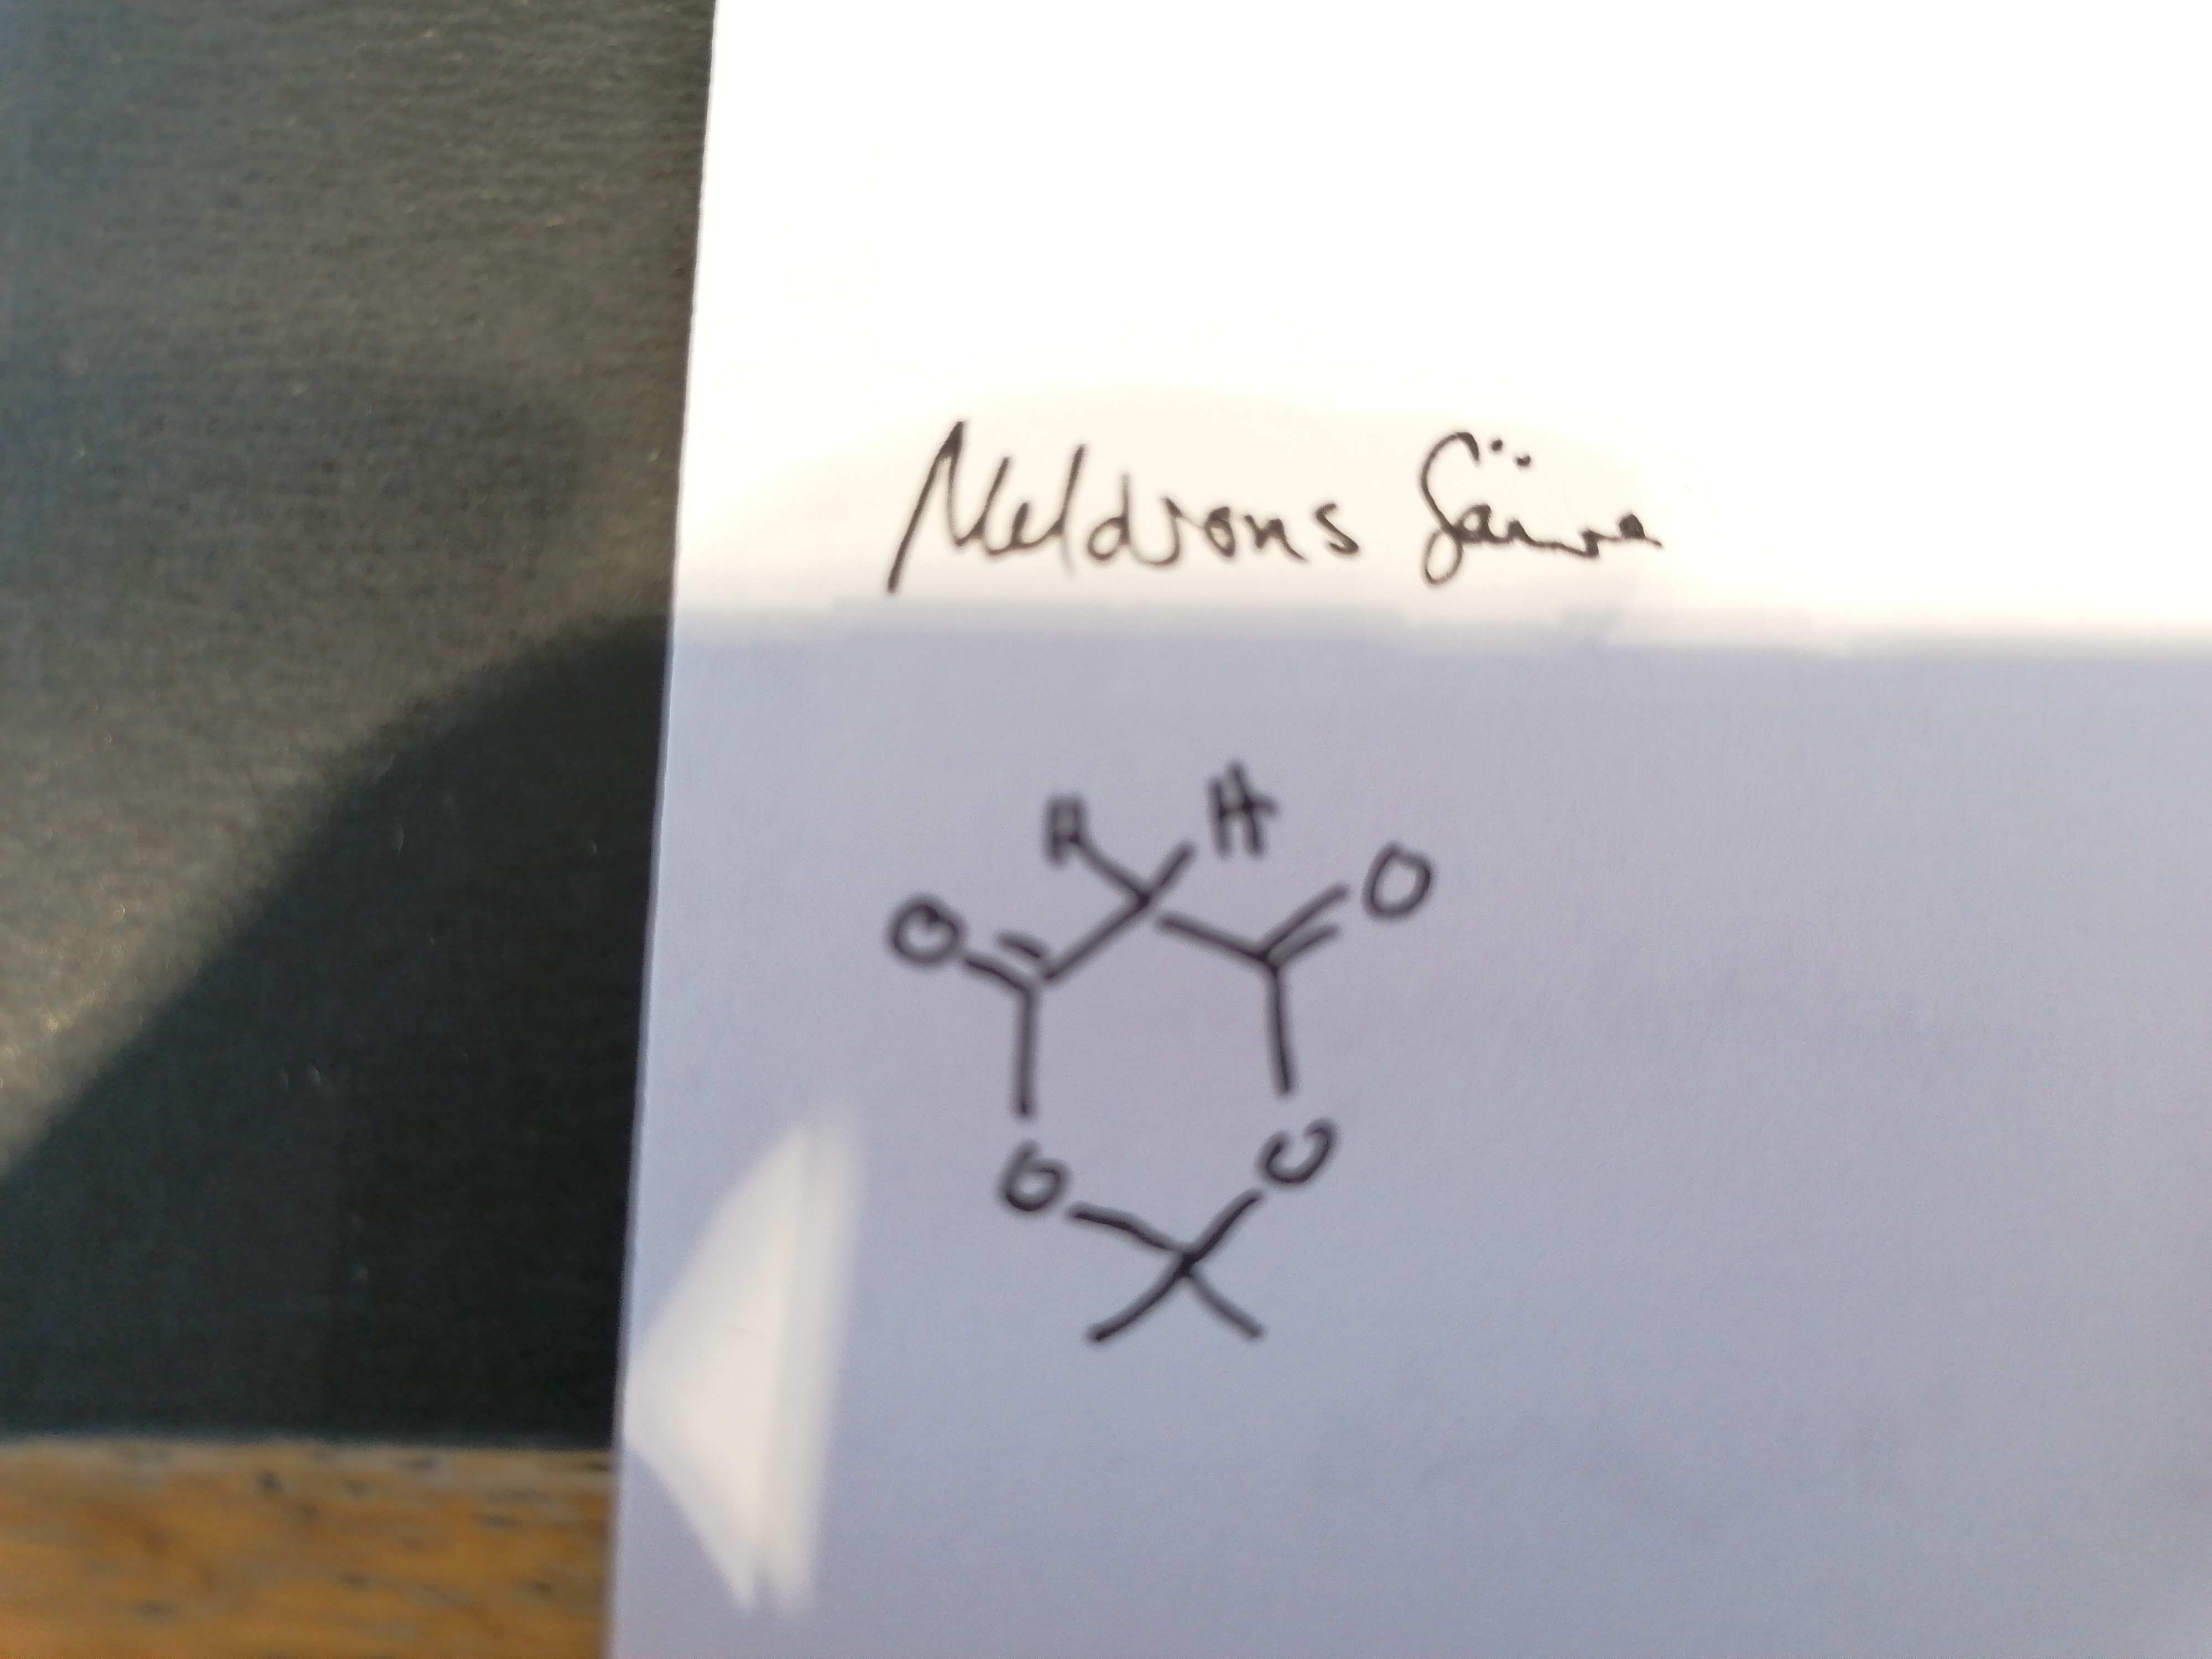 Meldrons Säure
H H
O O
O O